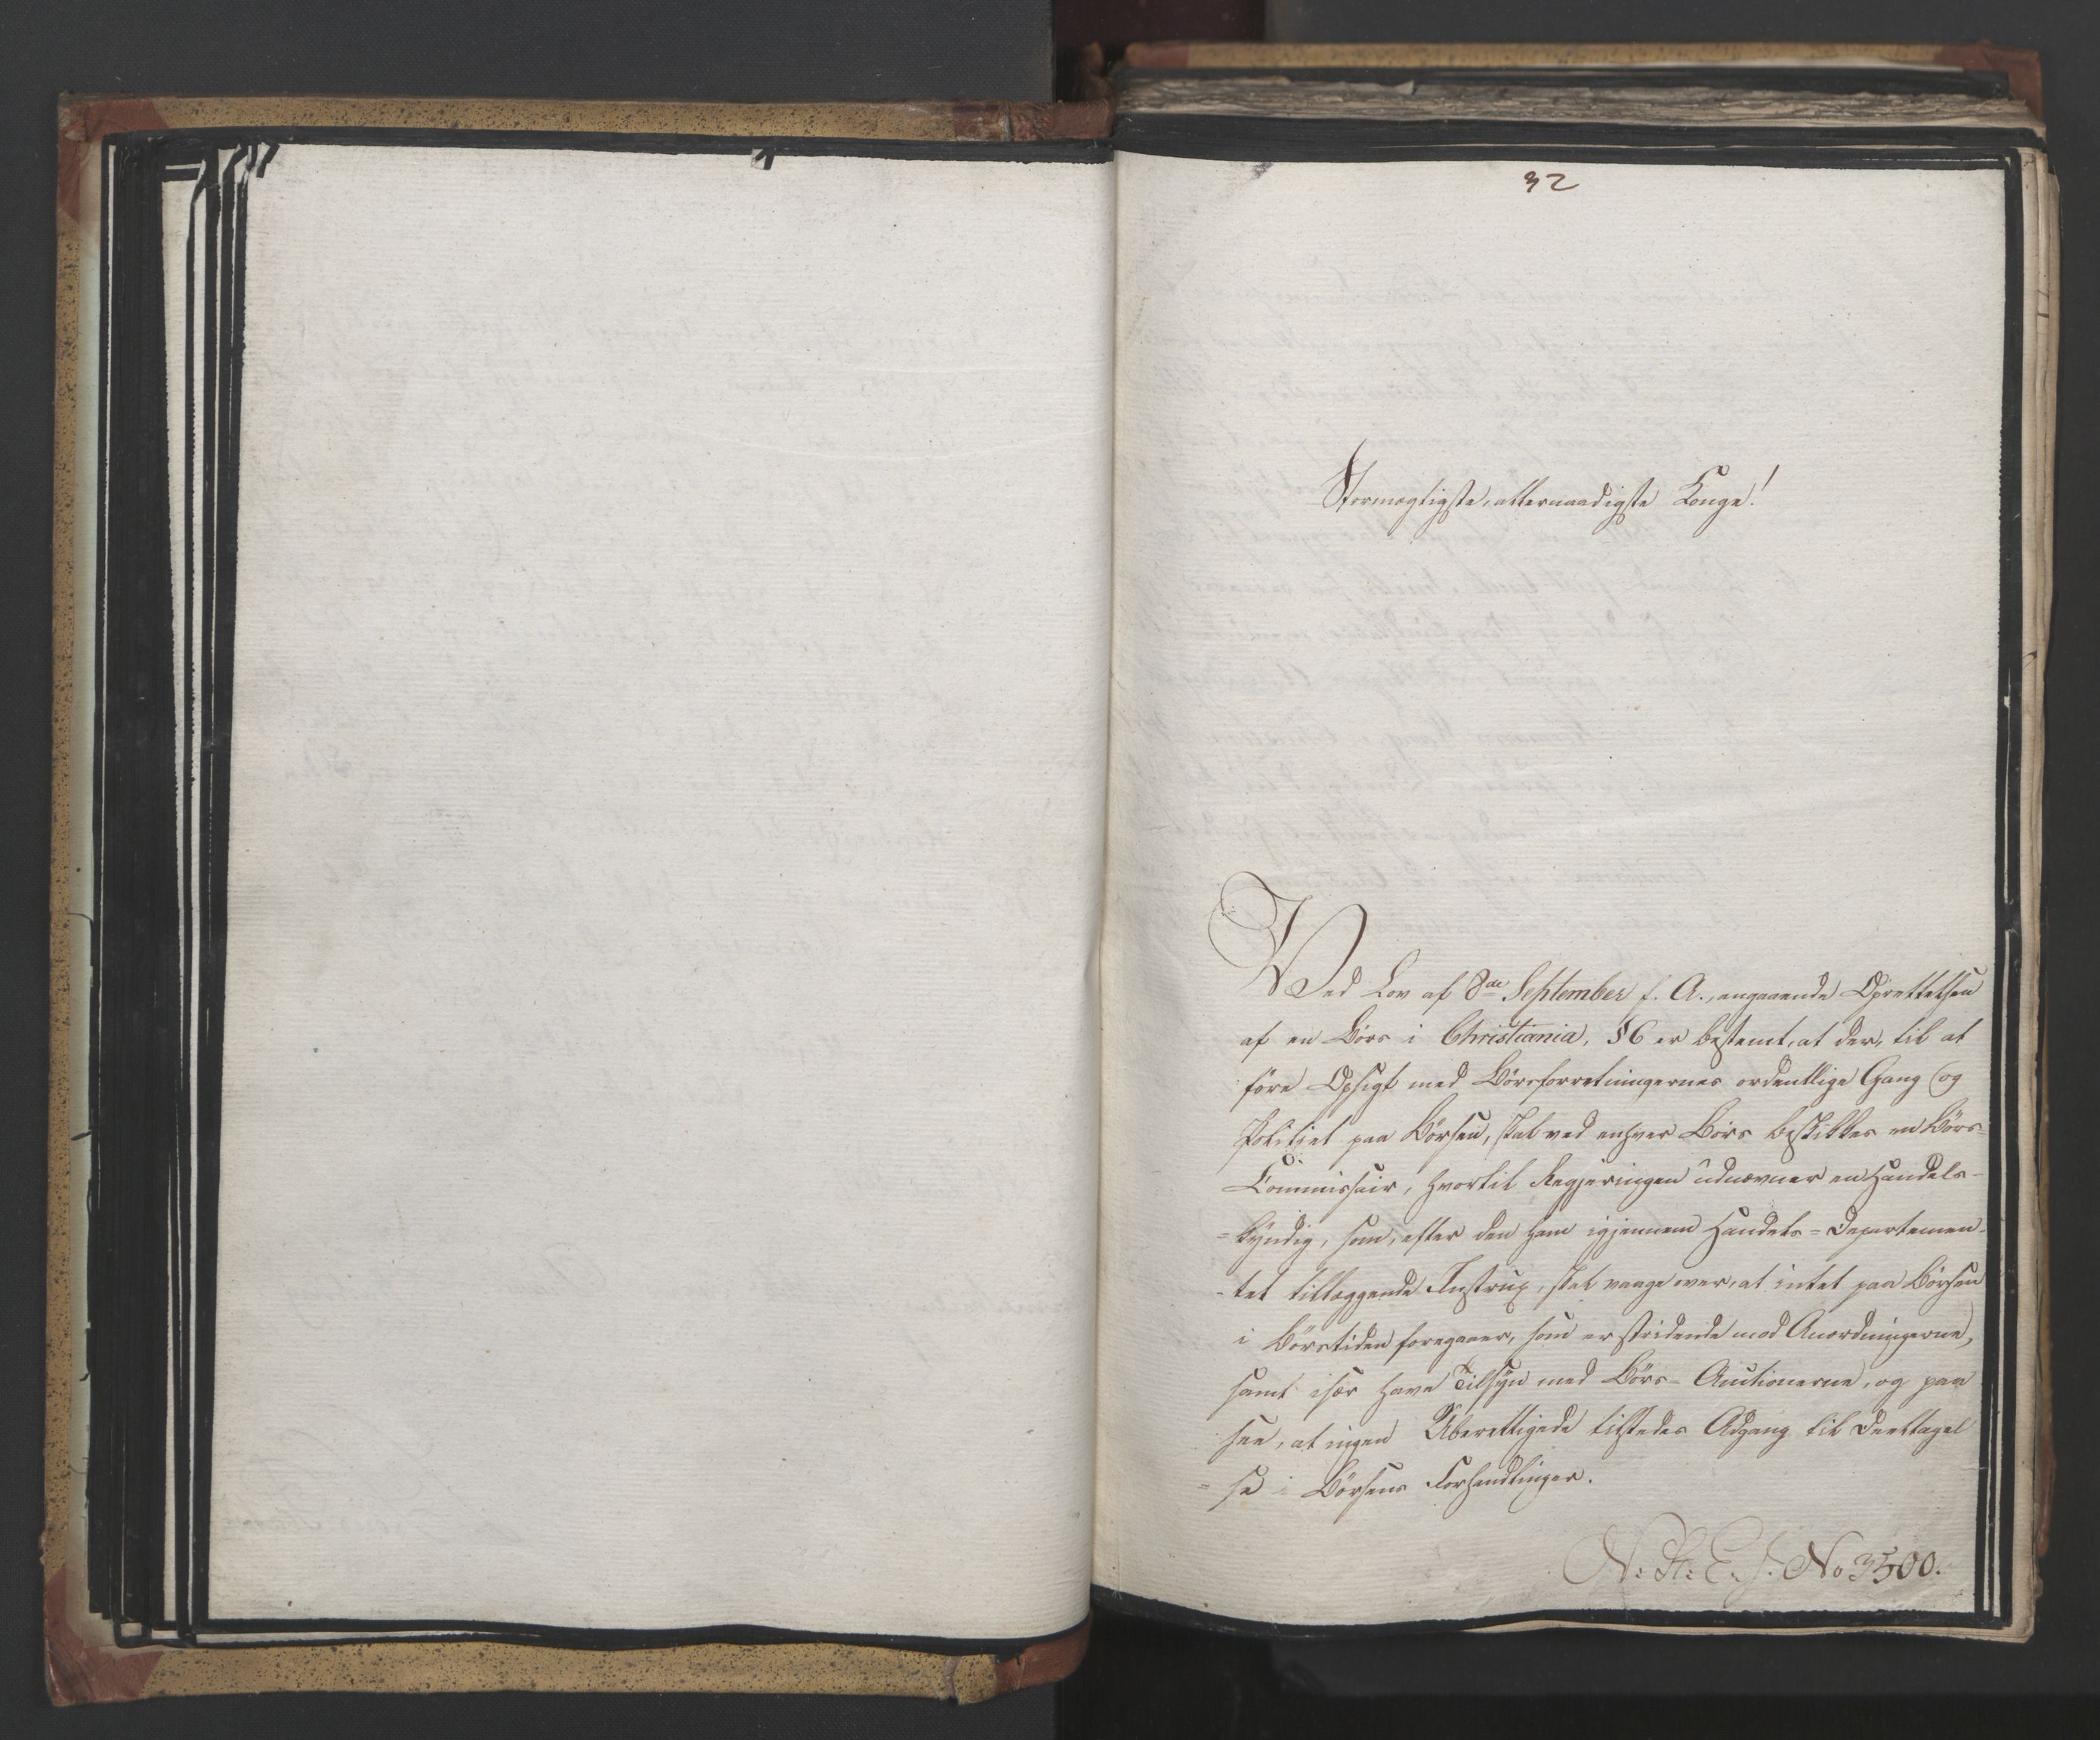 32
Stormægtigste, allernaadigste Konge!
Ved Lov af 8de September f. A., angaaende Oprettelsen
af en Börs i Christiania, §6 er bestemt, at der, til at
före Opsigt med Börsforretningernes ordentlige Gang og
Politiet paa Börsen, skal ved enhver Börs beskikkes en Börs-
Commissair, hvortil Regjeringen udnævner en Handels-
=kyndig, som, efter den ham igjennem Handels=Departemen-
-tet tillæggende Instrux, skal vaage over, at intet paa Börsen
i Börstiden foregaaer, som er stridende mod Anordningerne,
samt især have Tilsyn med Börs-Auctionerne, og paa
see, at ingen Uberettigede tilstedes Adgang til Deeltagel
=se i Börsens Forhandlinger.
No 3500.